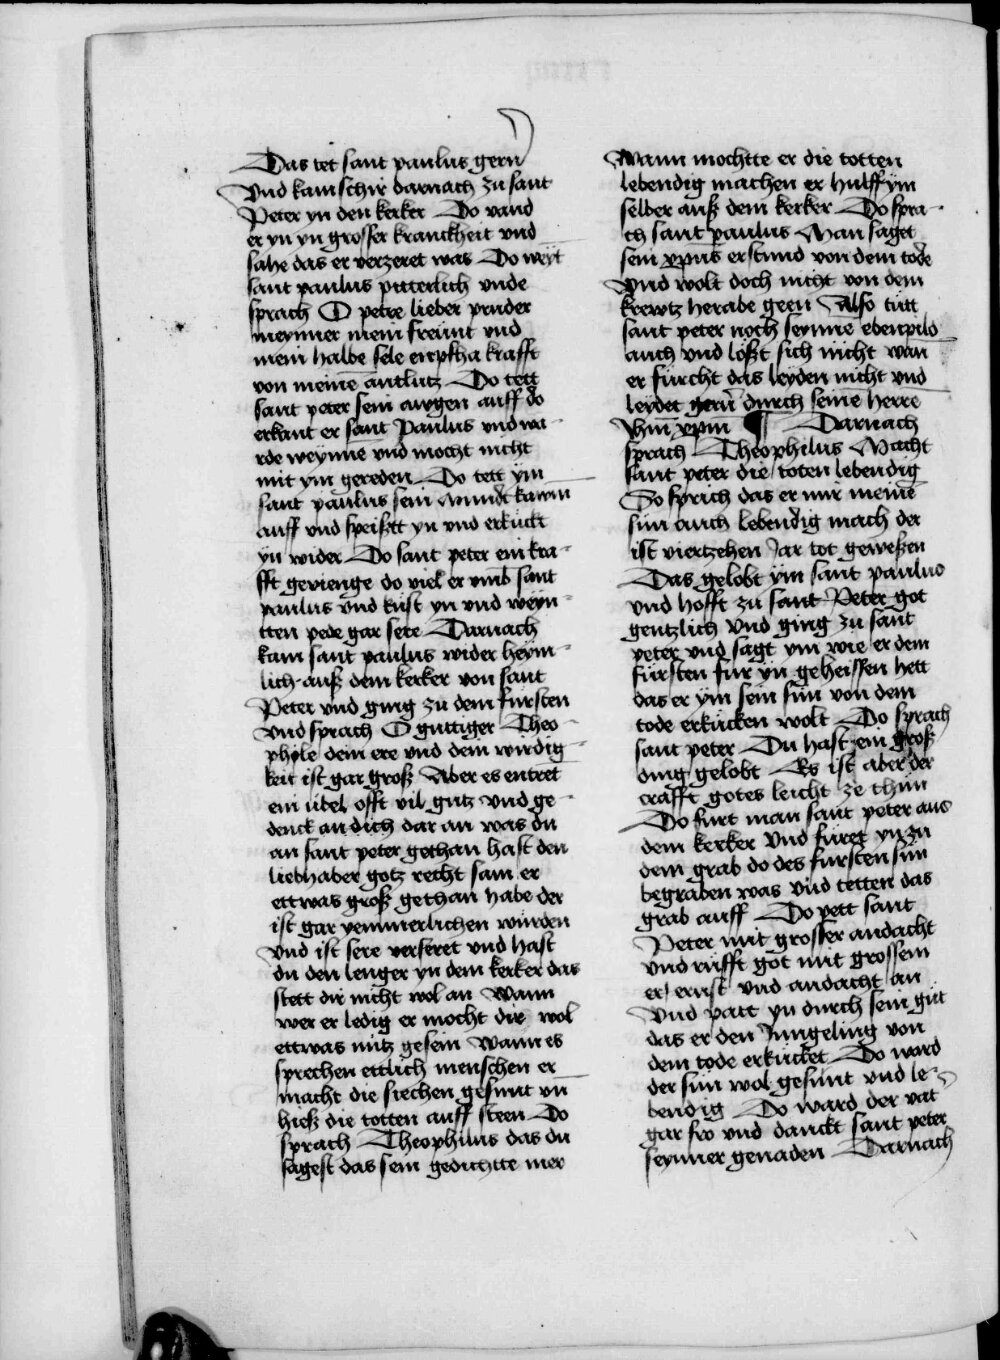 Das tet sant paulus gern
Vnd kam schir darnach zu sant
Peter yn den kerker Do vand
er yn yn grosser kranckheit vnd
sahe das er verzeret was Do weyt
sant paulus pitterlich vnde
sprach O petre lieber pruder
meynner mein freünt vnd
mein halbe sele enpfha krafft
von meinē antlütz Do tett
sant peter sein awgen auff do
erkant er sant Paulus vnd wa-
rde weynnē vnd mocht nicht
mit ym gereden Do tett ym
sant paulus sein mundt kawm
auff vnd speißtt yn vnd erkuckt
yn wider Do sant peter ein kra-
fft gevienge do viel er vmb sant
paulus vnd küst yn vnd weyn-
tten pede gar sere Darnach
kam sant paulus wider heym-
lich auß dem kerker von sant
Peter vnd ging zu dem fursten
vnd sprach O guttiger Theo-
phole dein ere vnd dein wirdig-
keit ist gar groß Aber es entret
ein übel offt vil gutz vnd ge-
denck an dich dar an was du
an sant peter gethan hast den
liebhaber gotz recht sam er
ettwas groß gethan habe der
ist gar yemmerlichen würden
vnd ist sere verseret vnd hast
du den lenger yn dem kerker das
stett dir nicht wol an Wann
wer er ledig er mocht dir wol
ettwas nütz gesein Wann es
sprechen ettlich menschen er
macht die siechen gesunt vn̄
hieß die totten auff steen Do
sprach Theophilus das du
sagest das sein gedichtte mer
Wann mochtte er die totten
lebendig machen er hulff ym
selber auß dem kerker Do spra-
ch sant paulus Man saget
sein xpūs erstund von dem tode
Vnd wolt doch nicht von dem
krewtz herabe geen Also tütt
sant peter noch seynnē ebenpild
auch vnd lößt sich nicht wan̄
er fürcht das leyden nicht vnd
leydet gern durch seinē herrē
Jhm̄ xpm̄ ¶ Darnach
sprach Theophilus Macht
sant peter die toten lebendig
So sprich das er mir meinē
sün auch lebendig mach der
ist viertzehen Jar tot geweßen
Das gelobt ym sant paulus
vnd hofft zu sant Peter got
gentzlich vnd ging zu sant
peter vnd sagt ym wie er dem
fürsten für yn geheissen hett
das er ym sein sün von dem
tode erkücken wolt Do sprach
sant peter Du hast ein groß
ding gelobt Es ist aber der
crafft gotes leicht ze thun
Do furt man sant peter aus
dem kerker Vnd füret yn zu
dem grab do des fursten sün
begraben was vnd tetten das
grab auff Do pett sant
Peter mit grosser andacht
vnd rüfft got mit grossem
er ernst vnd andacht an
Vnd patt yn durch sein güt
das er den Jungeling von
dem tode erkucket Do ward
der sün wol gesunt vnd le-
bendig Do ward der vat
gar fro vnd danckt sant peter
seynner genaden Darnach